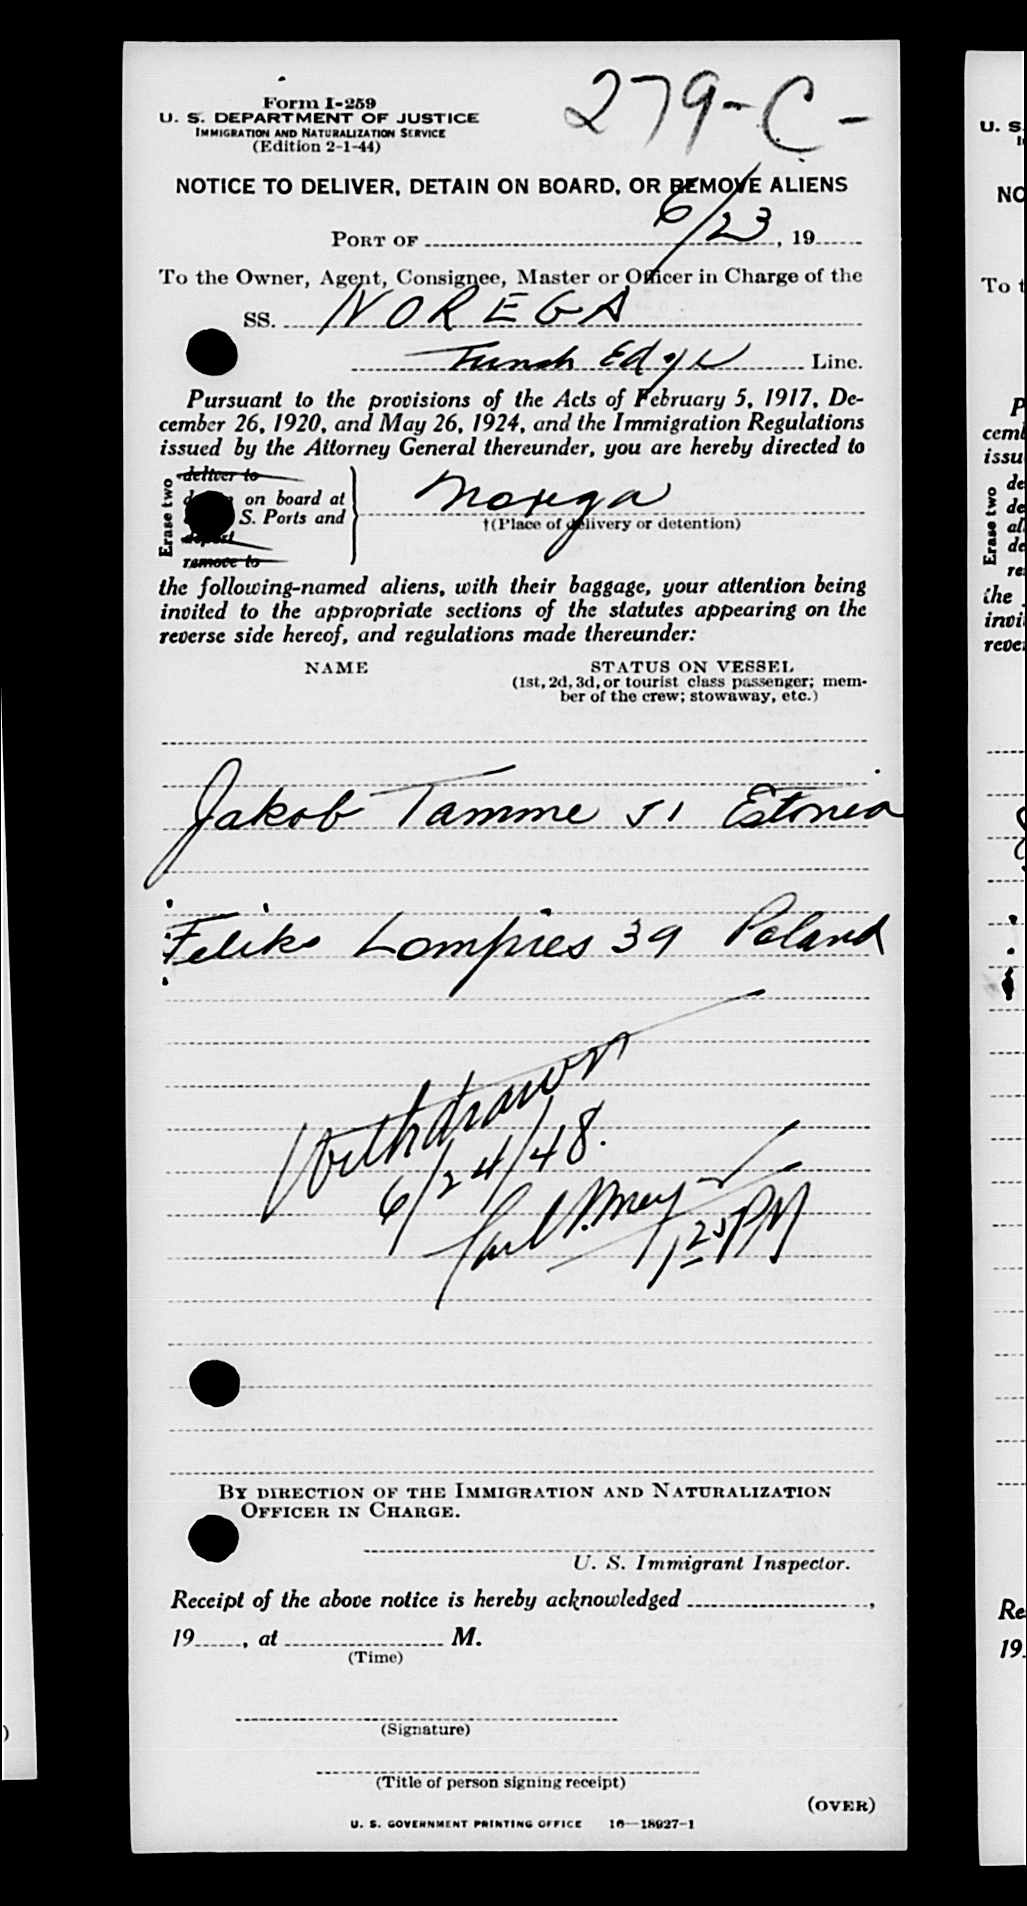 279-C-
Form I-259
U. S. DEPARTMENT OF JUSTICE
IMMIGRATION AND NATURALIZATION SERVICE
(Edition 2-1-44)
NOTICE TO DELIVER, DETAIN ON BOARD, OR REMOVE ALIENS
PORT OF 6/23, 19
To the Owner, Agent, Consignee, Master or Officer in Charge of the
SS. NOREGA
Edye Line.
Pursuant to the provisions of the Acts of February 5, 1917, De-
cember 26, 1920, and May 26, 1924, and the Immigration Regulations
issued by the Attorney General thereunder, you are hereby directed to
Erase two
deliver to
on board at
S. Ports and
deport
remove to
Norega
†(Place of delivery or detention)
the following-named aliens, with their baggage, your attention being
invited to the appropriate sections of the statutes appearing on the
reverse side hereof, and regulations made thereunder:
NAME STATUS ON VESSEL
(1st, 2d, 3d, or tourist class passenger; mem-
ber of the crew; stowaway, etc.)
Jakob Tamme 51 Estonia
Feliks Lompies 39 Poland
Withdrawn
6/24/48.
125 PM
BY DIRECTION OF THE IMMIGRATION AND NATURALIZATION
OFFICER IN CHARGE.
U. S. Immigrant Inspector.
Receipt of the above notice is hereby acknowledged ,
19 , at M.
(Time)
(Signature)
(Title of person signing receipt)
(OVER)
U. S. GOVERNMENT PRINTING OFFICE 16—18927-1